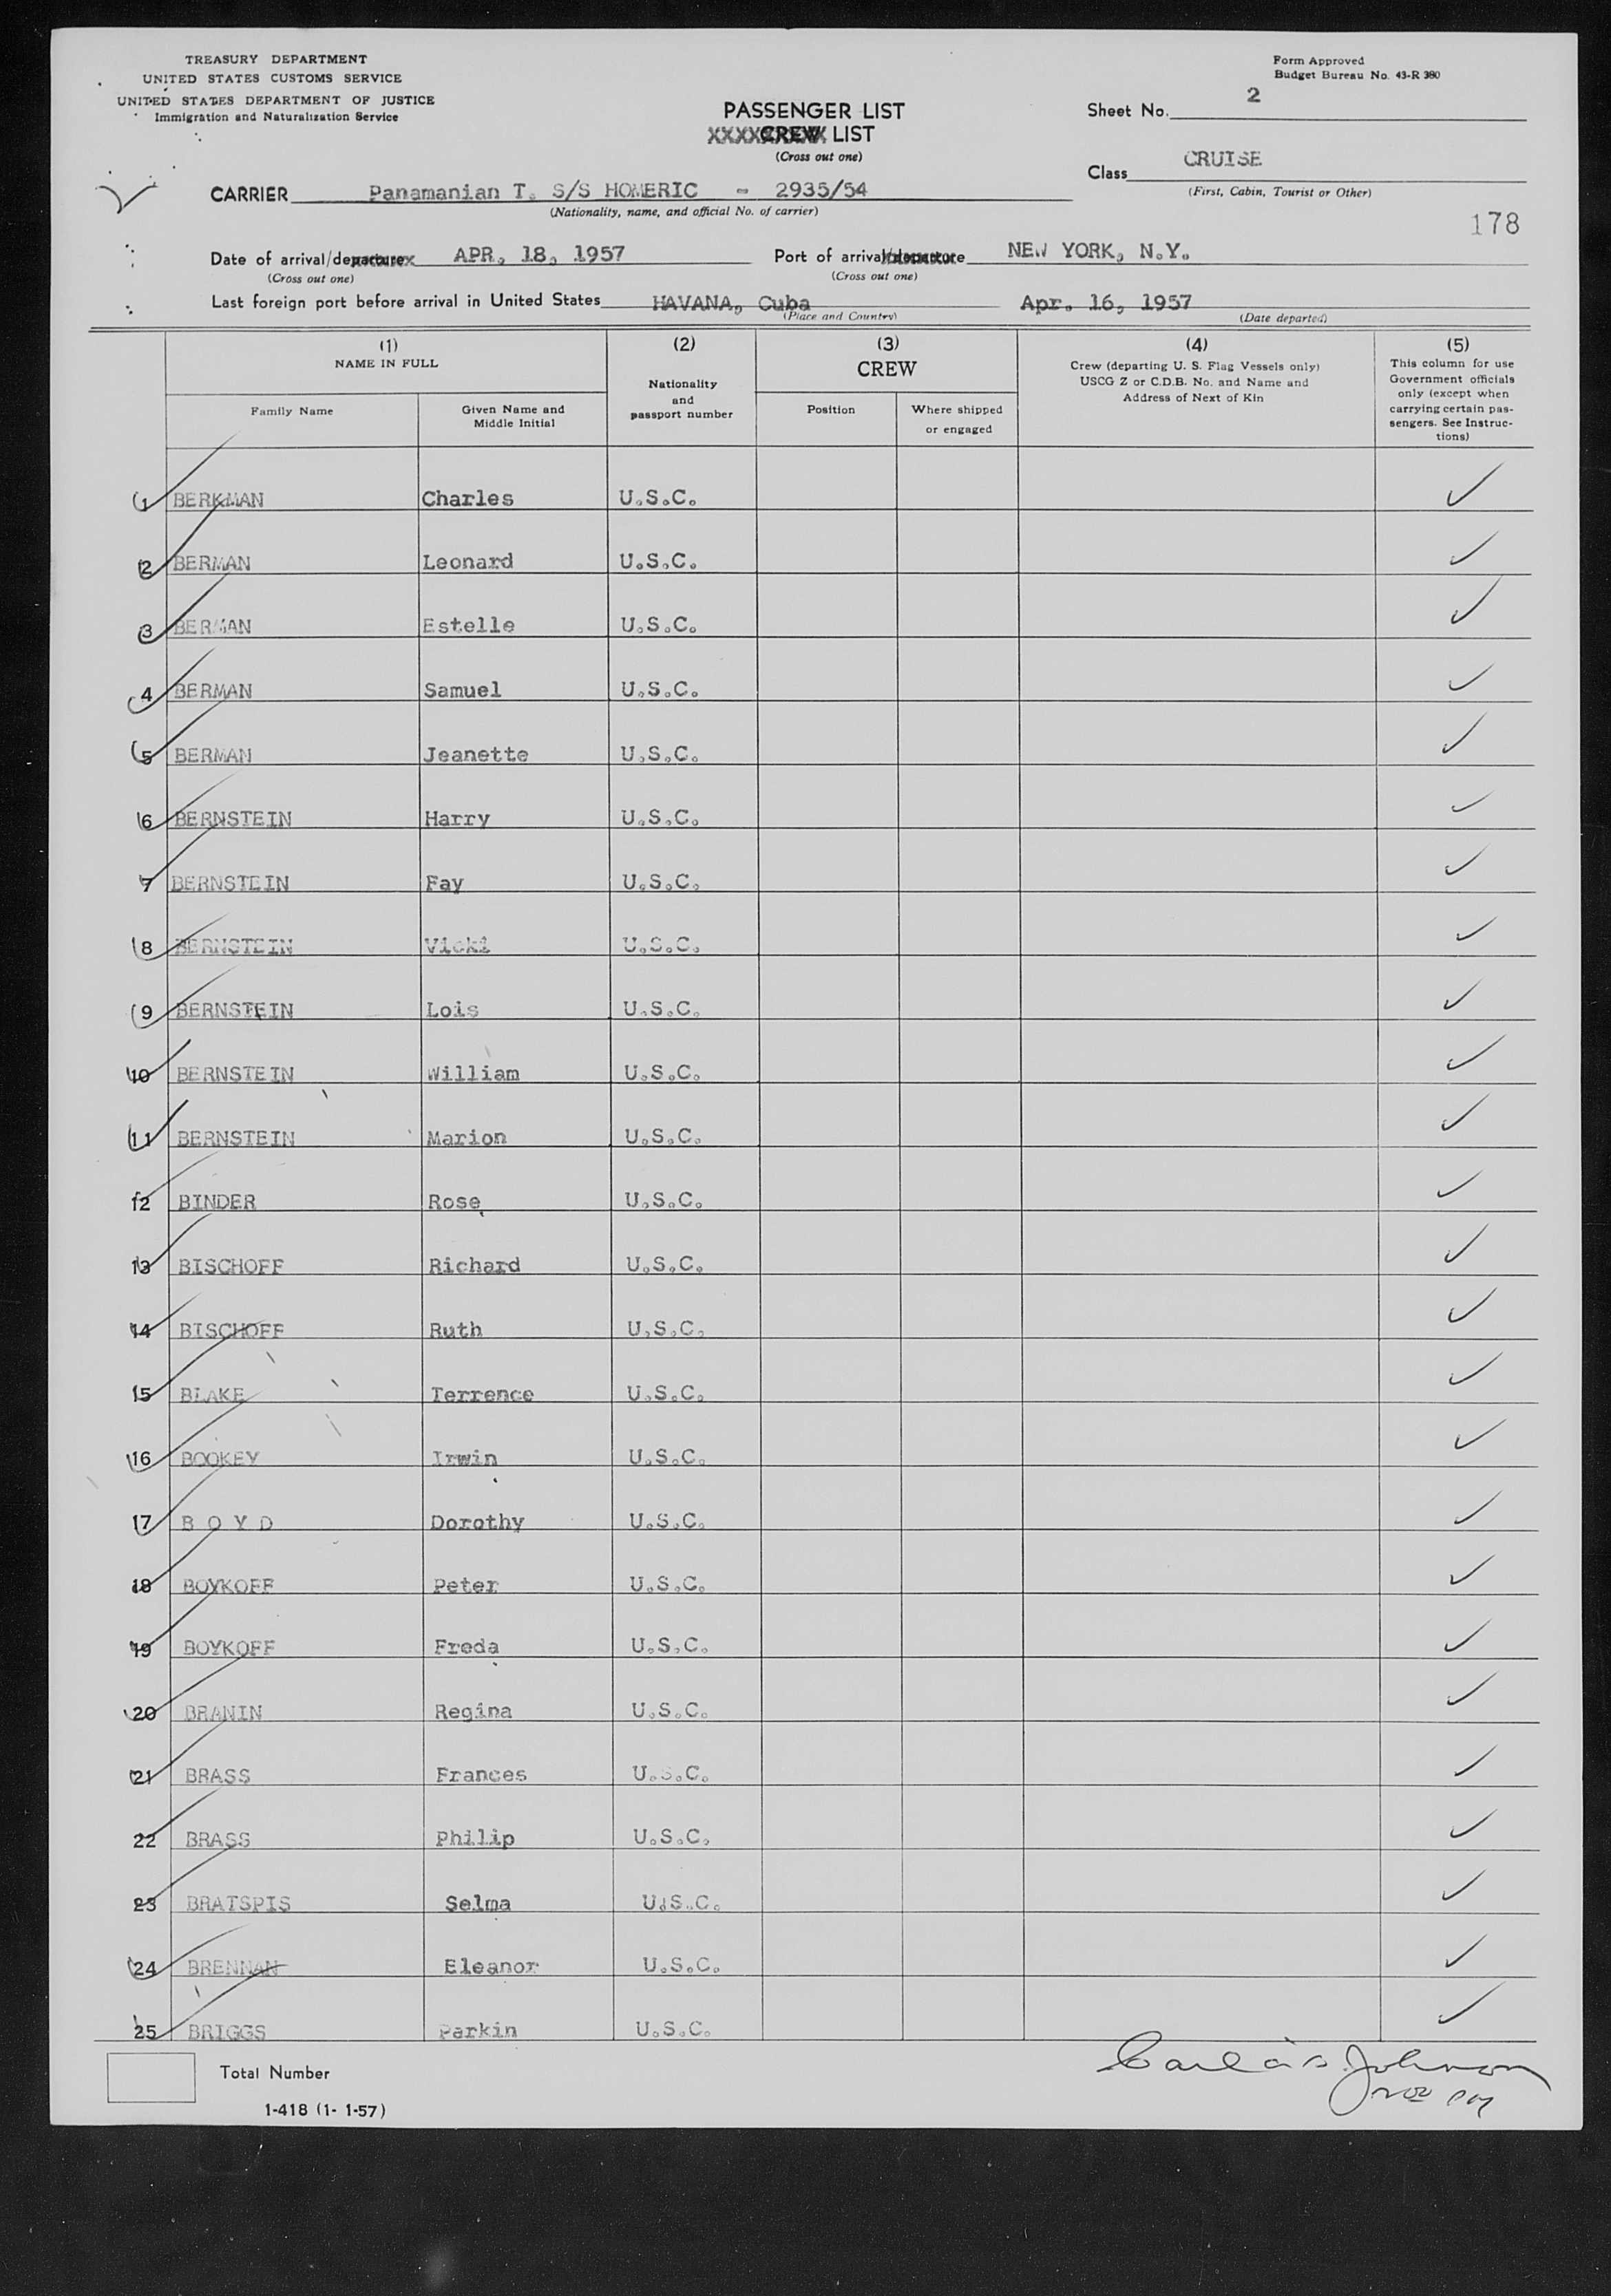 TREASURY DEPARTMENT
UNITED STATES CUSTOMS SERVICE
UNITED STATES DEPARTMENT OF JUSTICE
Immigration and Naturalization Service
Form Approved
Budget Bureau No. 43-R 380
PASSENGER LIST
CREW LIST
(Cross out one)
Sheet No. 2
Class CRUISE
(First, Cabin, Tourist or Other)
178
CARRIER Panamanian T. S/S HOMERIC - 2935/54
(Nationality, name, and official No. of carrier)
Date of arrival/departure APR. 18, 1957 Port of arrival/departure NEW YORK, N.Y.
(Cross out one) (Cross out one)
Last foreign port before arrival in United States HAVANA, Cuba Apr. 16, 1957
(Place and Country) (Date departed)
(1) NAME IN FULL
Family Name
Given Name and Middle Initial
(2) Nationality and passport number
(3) CREW
Position
Where shipped or engaged
(4) Crew (departing U. S. Flag Vessels only) USCG Z or C.D.B. No. and Name and Address of Next of Kin
(5) This column for use Government officials only (except when carrying certain passengers. See Instructions)
1 BERKMAN Charles U.S.C.
2 BERMAN Leonard U.S.C.
3 BERMAN Estelle U.S.C.
4 BERMAN Samuel U.S.C.
5 BERMAN Jeanette U.S.C.
6 BERNSTEIN Harry U.S.C.
7 BERNSTEIN Fay U.S.C.
8 BERNSTEIN Vicki U.S.C.
9 BERNSTEIN Lois U.S.C.
10 BERNSTEIN William U.S.C.
11 BERNSTEIN Marion U.S.C.
12 BINDER Rose U.S.C.
13 BISCHOFF Richard U.S.C.
14 BISCHOFF Ruth U.S.C.
15 BLAKE Terrence U.S.C.
16 BOOKEY Irwin U.S.C.
17 B O Y D Dorothy U.S.C.
18 BOYKOFF Peter U.S.C.
19 BOYKOFF Freda U.S.C.
20 BRANIN Regina U.S.C.
21 BRASS Frances U.S.C.
22 BRASS Philip U.S.C.
23 BRATSPIS Selma U.S.C.
24 BRENNAN Eleanor U.S.C.
25 BRIGGS Parkin U.S.C.
Total Number
Johnson
I-418 (1- 1-57)